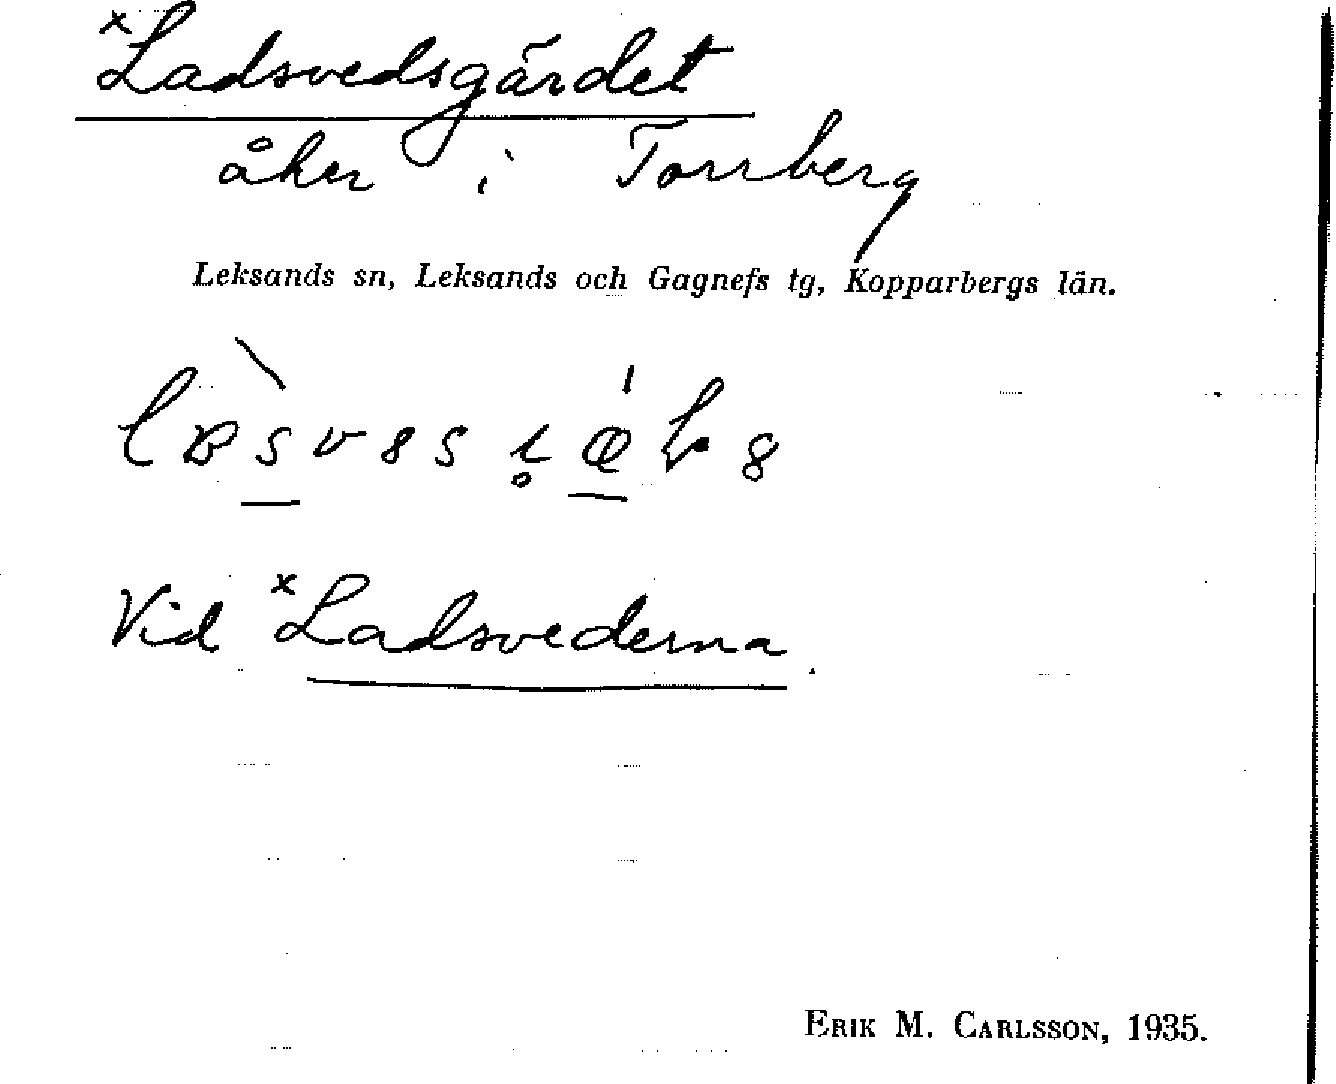 ×Ladsvedsgärdet
åker i Torrberg
Leksands sn, Leksands och Gagnefs tg, Kopparbergs län.
Vid ×Ladsvederna.
ERIK M. CARLSSON, 1935.